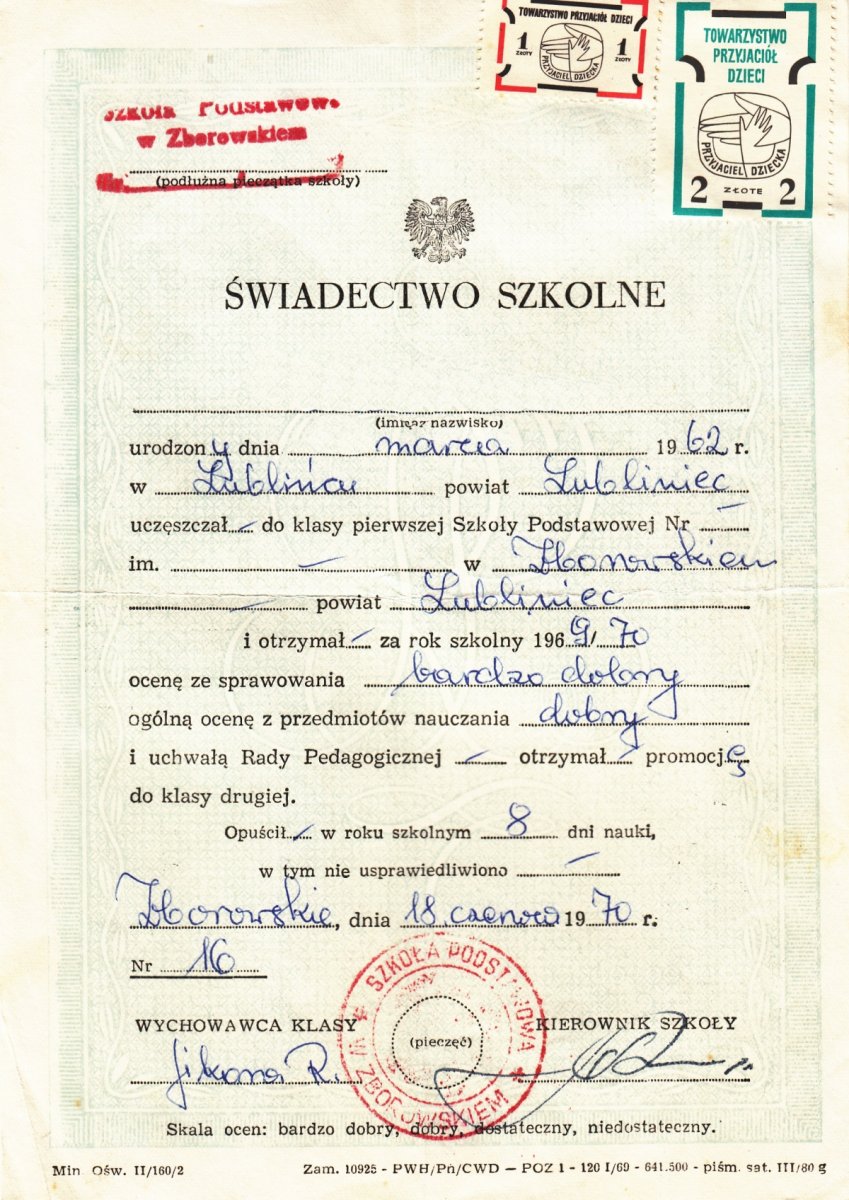 TOWARZYSTWO PRZYJACIÓŁ DZIECI
1 ZŁOTY 1 ZŁOTY
PRZYJACIEL DZIECKA
TOWARZYSTWO
PRZYJACIÓŁ
DZIECI
PRZYJACIEL DZIECKA
2 ZŁOTE 2
Szkoła Podstawowa
w Zborowskiem
(podłużna pieczątka szkoły)
ŚWIADECTWO SZKOLNE
(imię i nazwisko)
urodzony dnia marca 1962 r.
w Lublińcu powiat Lubliniec
uczęszczał — do klasy pierwszej Szkoły Podstawowej Nr —
im. — w Zborowskiem
— powiat Lubliniec
i otrzymał — za rok szkolny 1969/70
ocenę ze sprawowania bardzo dobry
ogólną ocenę z przedmiotów nauczania dobry
i uchwałą Rady Pedagogicznej — otrzymał — promocję
do klasy drugiej.
Opuścił — w roku szkolnym 8 dni nauki,
w tym nie usprawiedliwiono —
Zborowskie, dnia 18 czerwca 1970 r.
Nr 16
SZKOŁA PODSTAWOWA
W ZBOROWSKIEM
WYCHOWAWCA KLASY (pieczęć) KIEROWNIK SZKOŁY
R.
Skala ocen: bardzo dobry, dobry, dostateczny, niedostateczny.
Min. Ośw. II/160/2 Zam. 10925 - PWH/Pń/CWD — POZ 1 - 120 I/69 - 641.500 - piśm. sat. III/80 g